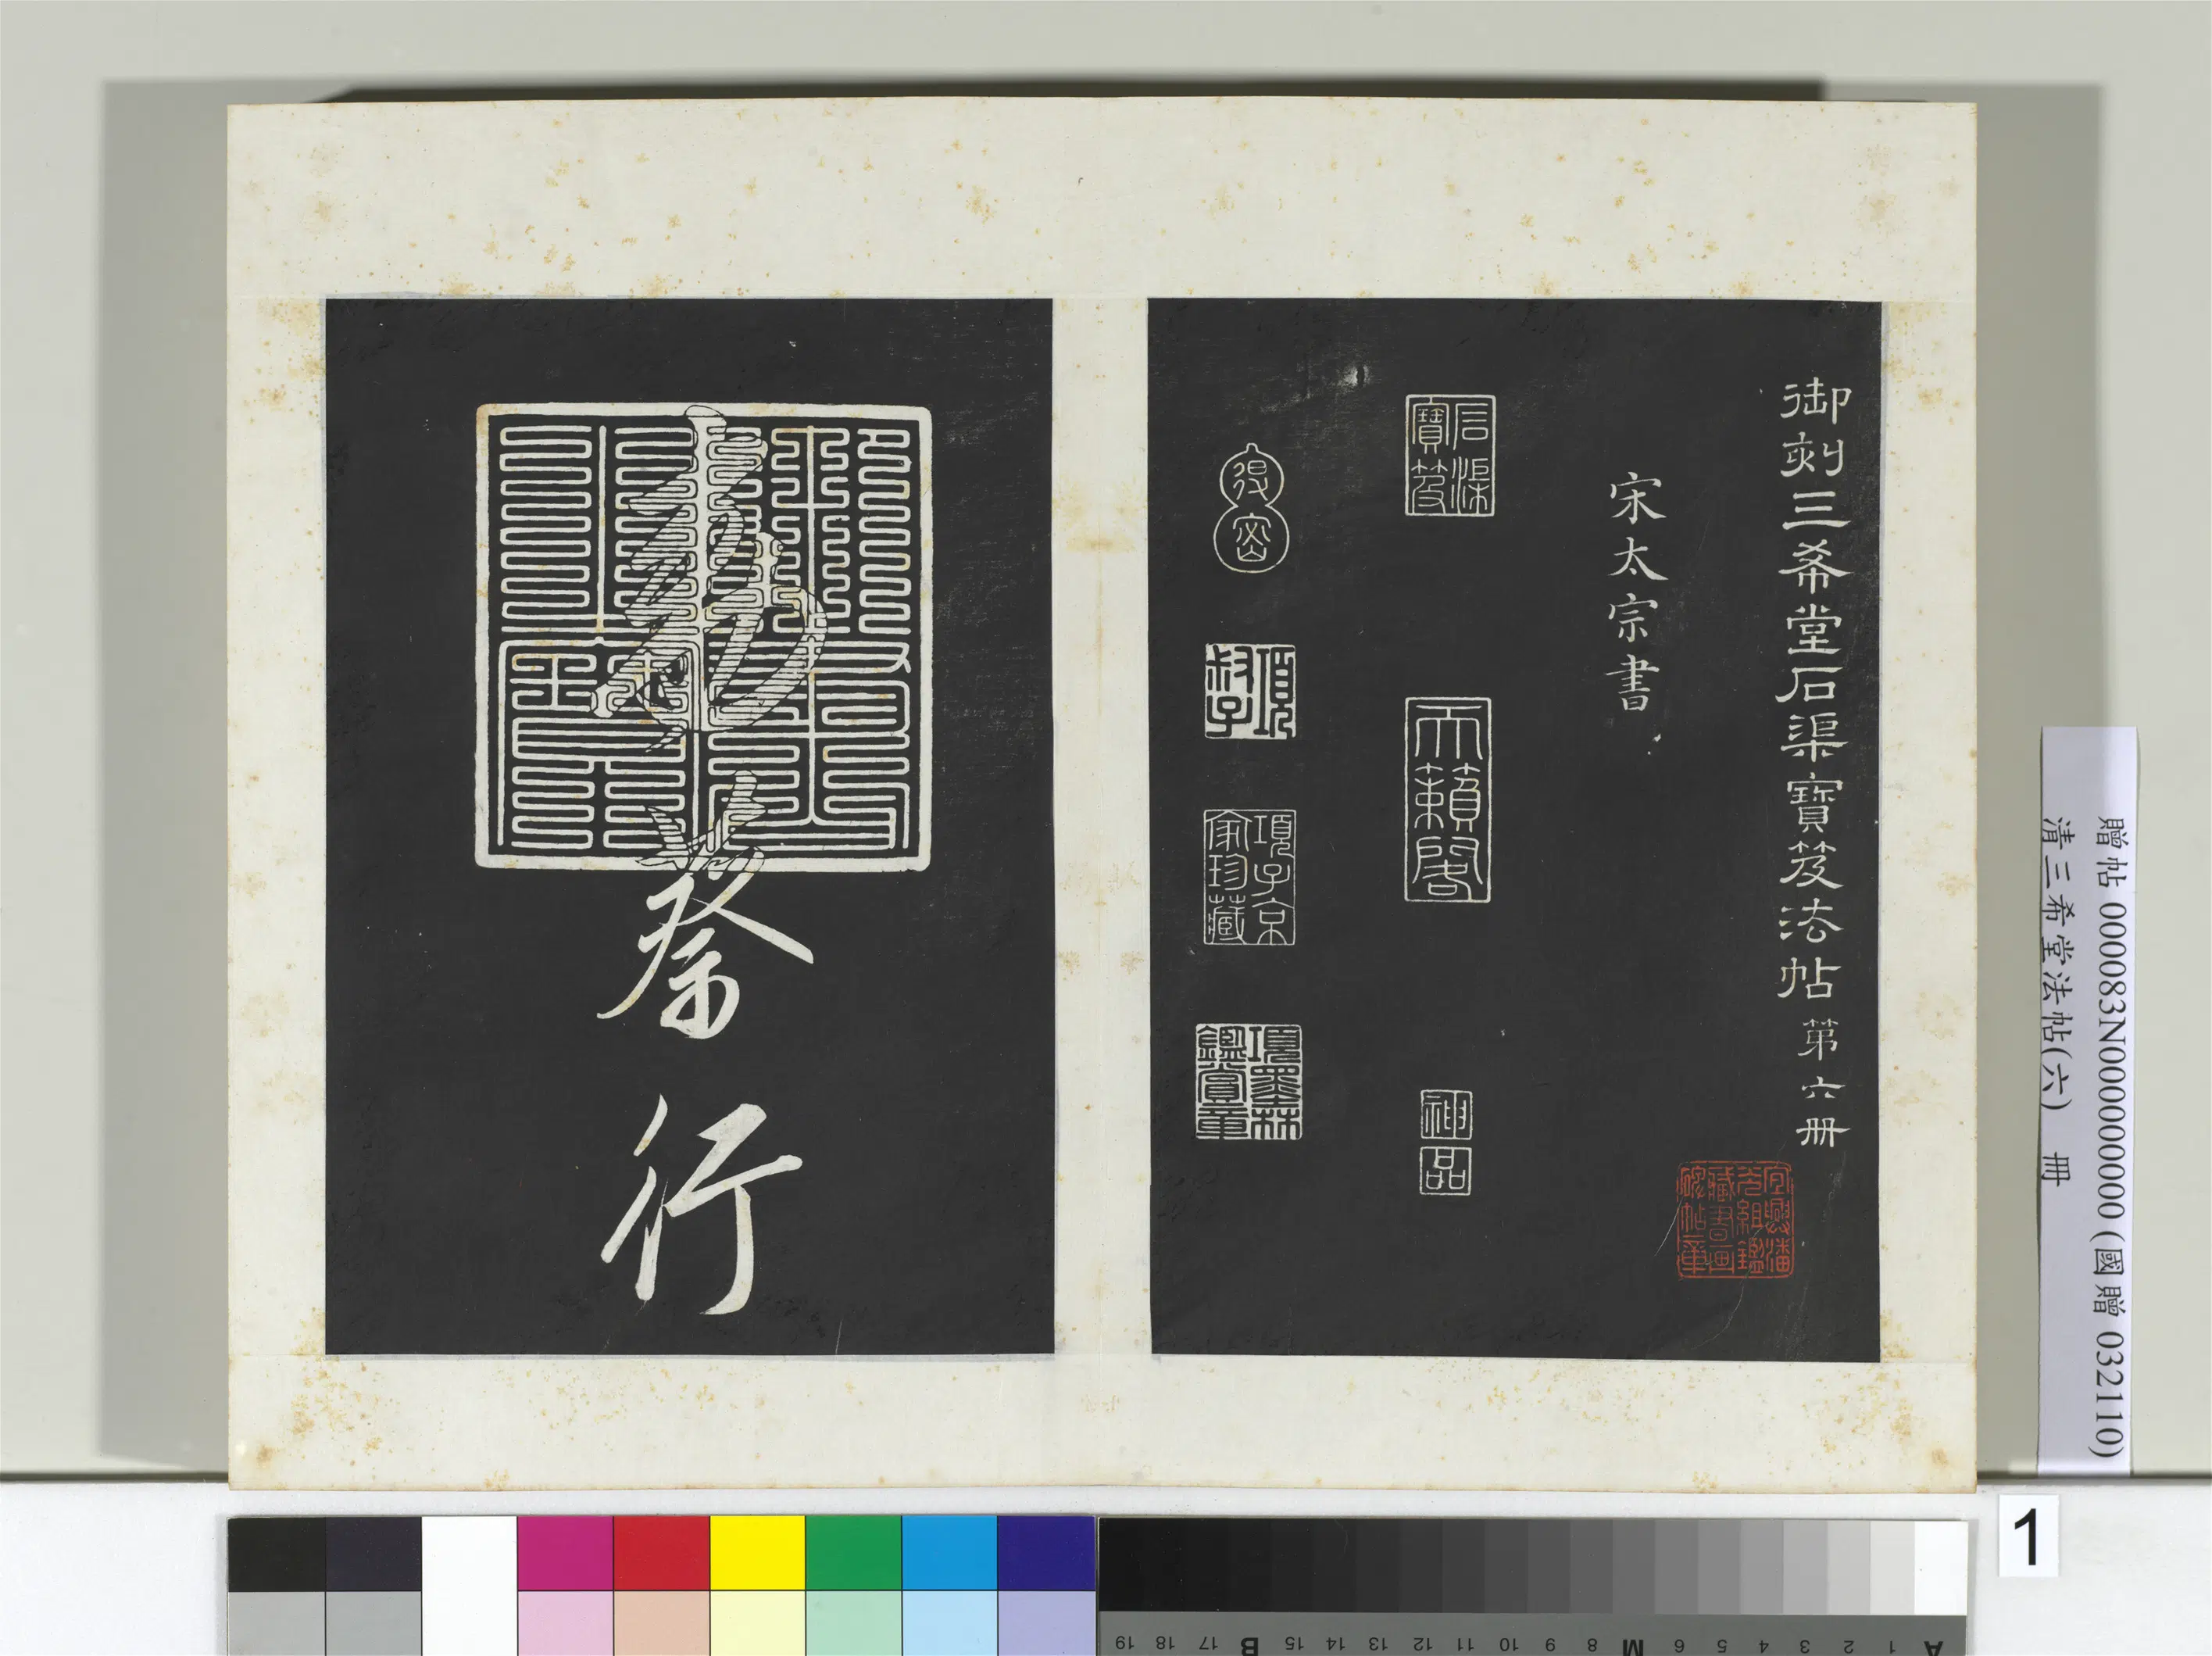 御刻三希堂石渠寶笈法帖第六冊
宜興潘
元組鑑
藏書画
碑帖章
宋太宗書
石渠
寶笈
天籟閣
神
品
退
密
項
叔子
項子京
家珍藏
項墨林
鑑賞章
蔡行
贈帖 000083N000000000 (國贈 032110)
清三希堂法帖(六) 冊
1
A 1 2 3 4 5 6 M 8 9 10 11 12 13 14 15 B 17 18 19